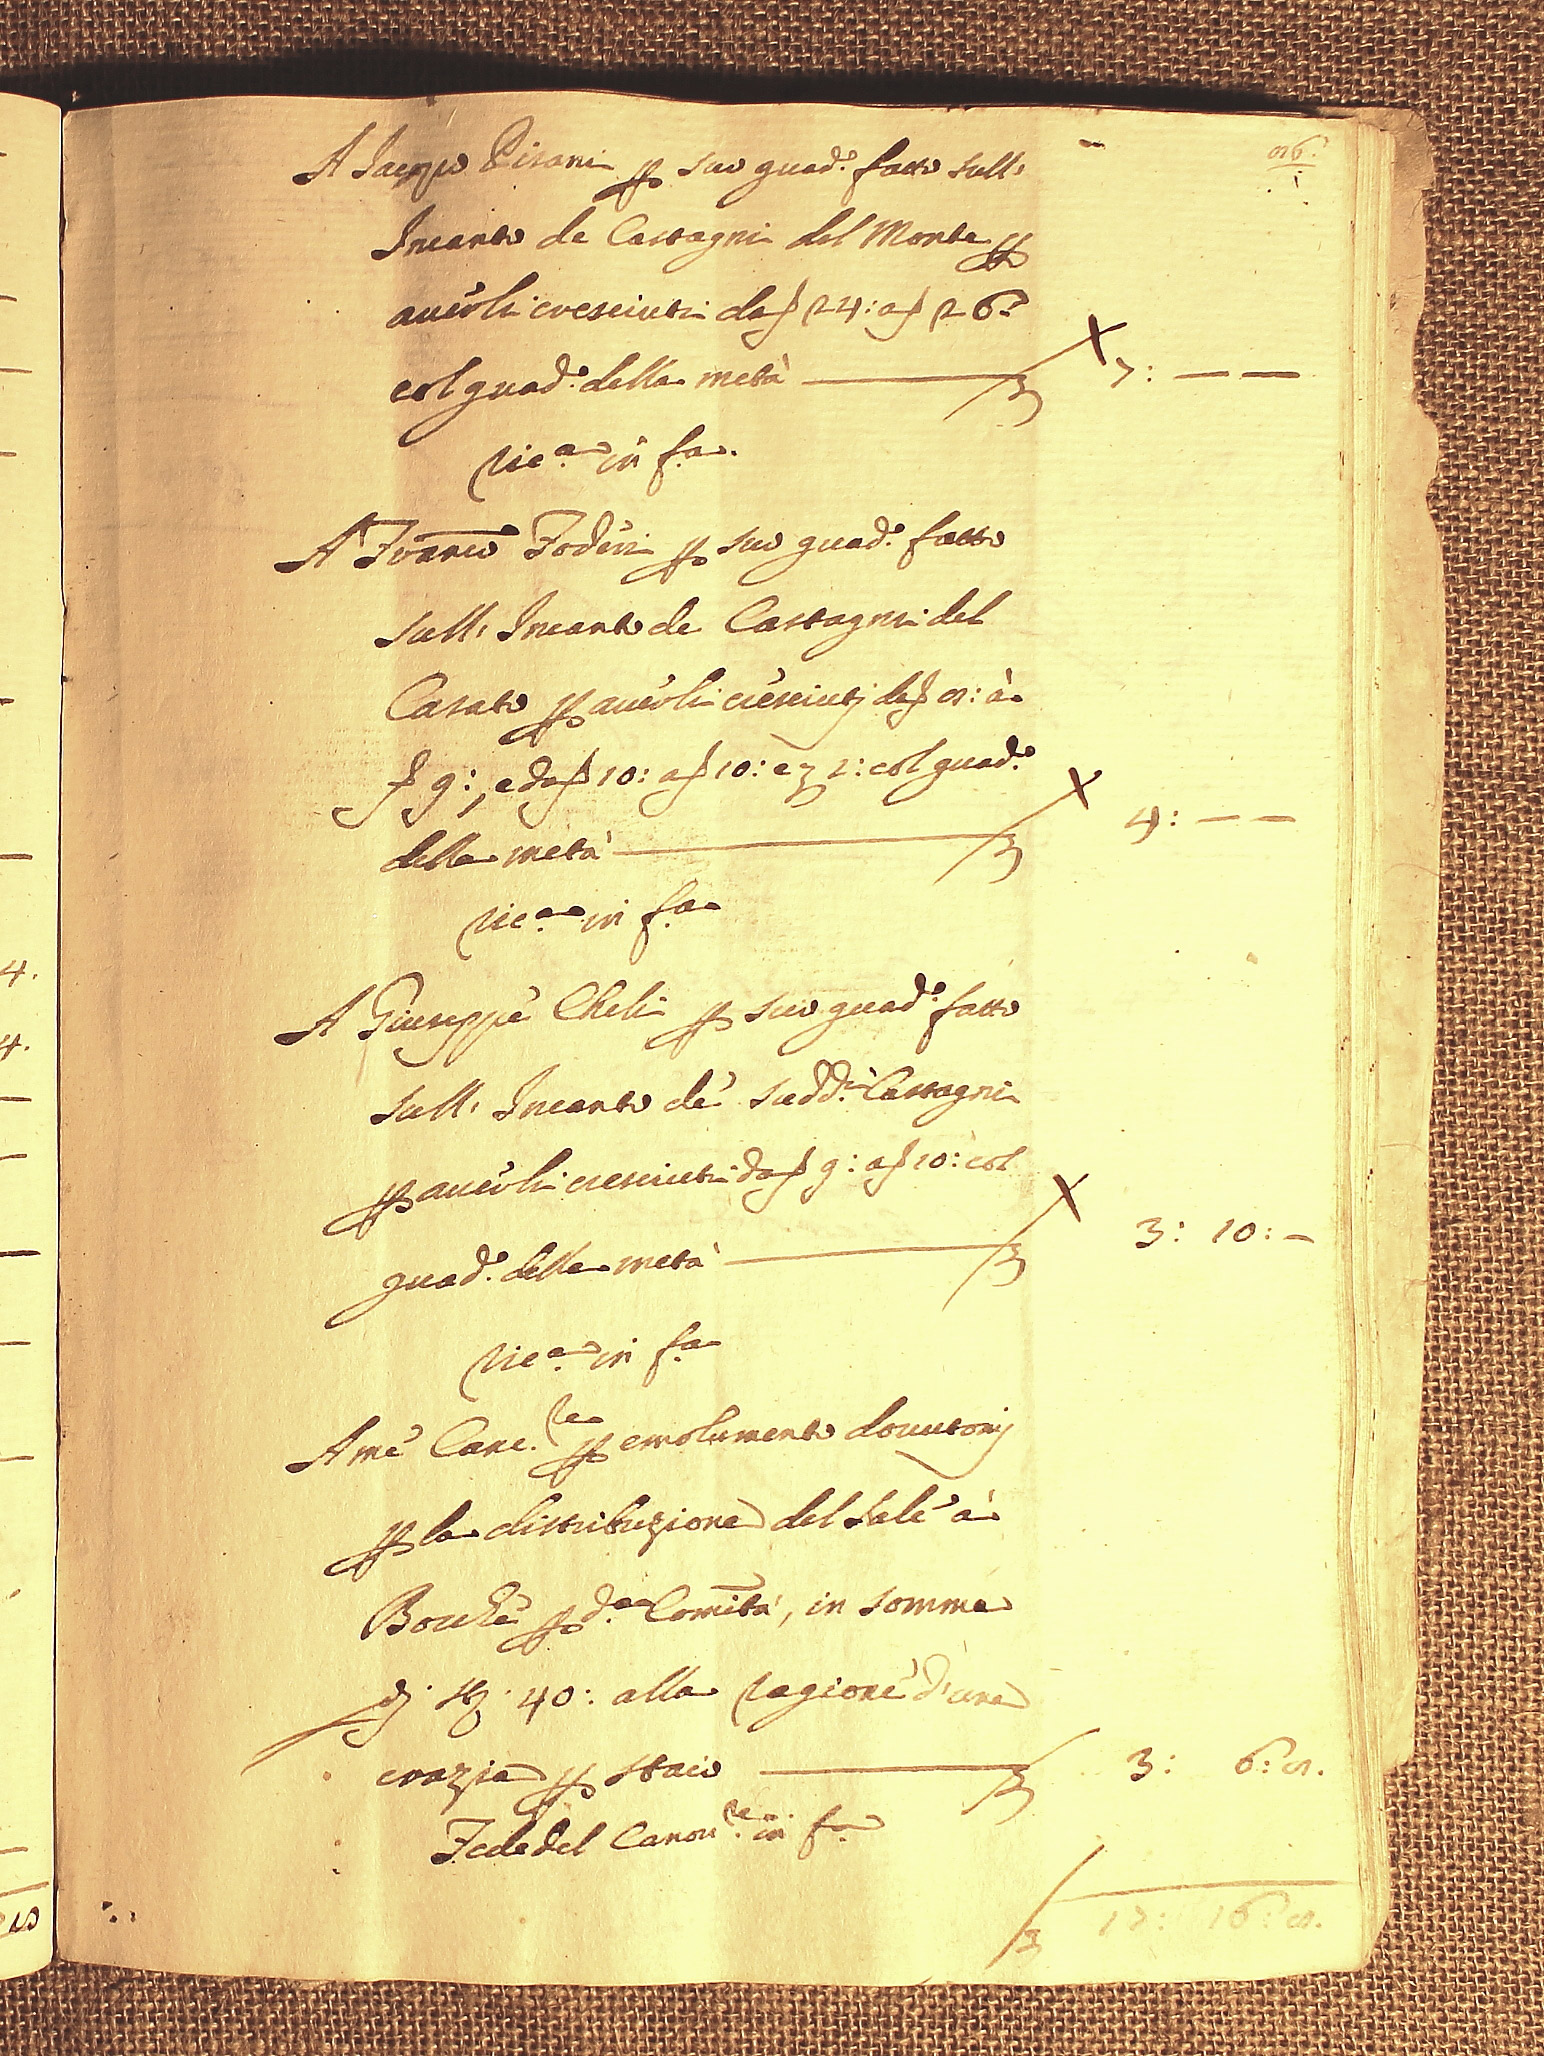 86.
A Jacopo Pisani p suo guad.º fatto sull'
Incanto de Castagni del Monte p
averli cresciuti da 24: a 26:
col guad.º della metà 7: — —
ric.ª in f.ª
A Franc.º Foderi p suo guad.º fatto
sull' Incanto de Castagni del
Casato p averli cresciuti da 8: à
9:, e da 10: a 10: e 2: col guad.º
della metà 4: — —
ric.ª in f.ª
A Giuseppe Cheli p suo guad.º fatto
sull' Incanto de' sudd.i Castagni
p averli cresciuti da 9: a 10: col
guad.º della metà 3: 10: —
ric.ª in f.ª
A me Canc.re p emolumento dovutomj
p la distribuzione del Sale à
Bocche p d.ª Comità, in somma
dj 40: alla ragione d'una
crazia p staio 3: 6: 8.
Fede del in f.ª
17: 16: 8.
4.
4.